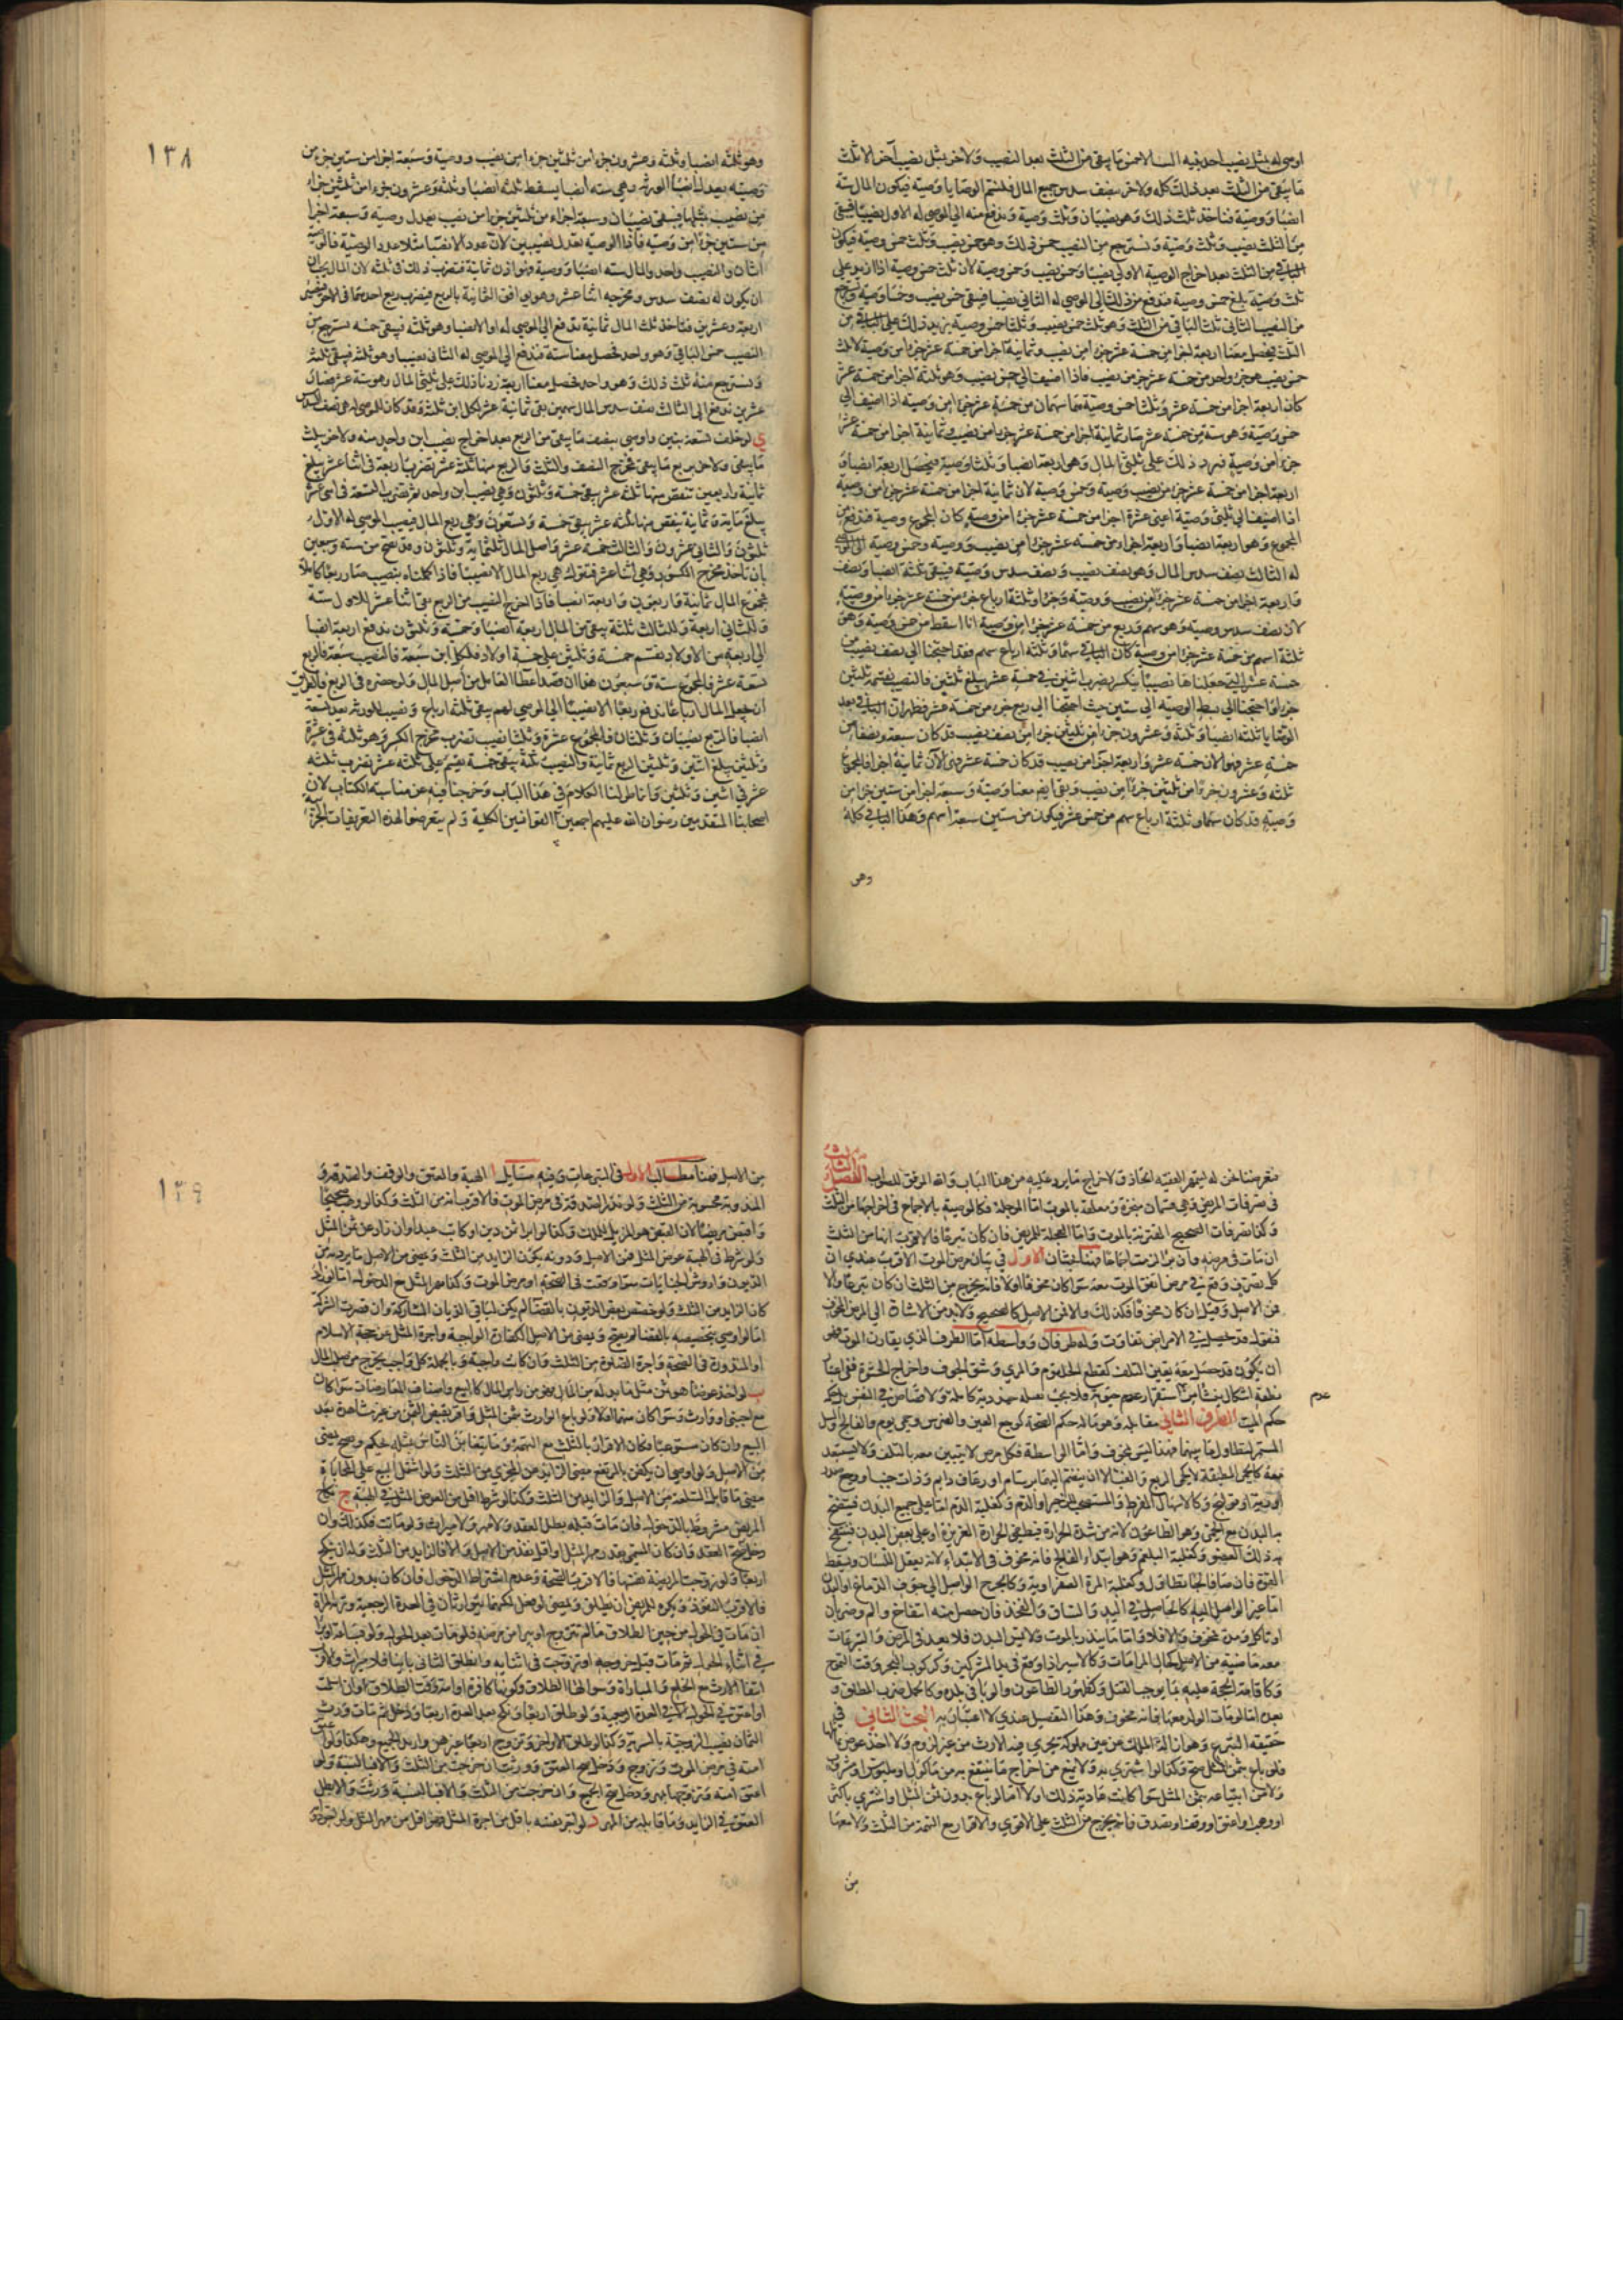 اوصي له بمثل نصيب احد بنيه الستة الا خمس ما يبقى من الثلث بعد النصيب ولاخر بمثل نصيب آخر الا ثلث
ما يبقى من الثلث بعد ذلك كله ولاخر بنصف سدس جميع المال فلنسم الوصايا وصية فيكون المال ستة
انصبا ووصية فناخذ ثلث ذلك وهو نصيبان وثلث وصية وندفع منه الى الموصى له الاول نصيبا فيبقى
من الثلث نصيب وثلث وصية ونسترجع من النصيب خمس ذلك وهو خمس نصيب وثلث خمس وصية فيكون
الباقي من الثلث بعد اخراج الوصية الاولى نصيبا وخمس نصيب وخمس وصية لان ثلث خمس وصية اذا زيد على
ثلث وصية بلغ خمس وصية فندفع من ذلك الى الموصى له الثاني نصيبا فيبقى خمس نصيب وخمسا وصية ونسترجع
من النصيب الثاني ثلث الباقي من الثلث وهو ثلث خمس نصيب وثلثا خمس وصية نزيد ذلك على الباقي من
الثلث فيحصل معنا اربعة اجزا من خمسة عشر جزءا من نصيب وثمانية اجزا من خمسة عشر جزءا من وصية لان ثلث
خمس نصيب هو جزء واحد من خمسة عشر جزء من نصيب فاذا اضيف الى خمس نصيب وهو ثلثة اجزا من خمسة عشر
كان اربعة اجزا من خمسة عشر وثلثا خمس وصية هما سهمان من خمسة عشر جزءا من وصية اذا اضيف الى
خمسي وصية وهو ستة من خمسة عشر صار ثمانية اجزا من خمسة عشر
جزءا من وصية فنرد ذلك على ثلثي المال وهو اربعة انصبا وثلثا وصية فيحصل اربعة انصبا و
اربعة اجزا من خمسة عشر جزءا من نصيب ووصية وخمس وصية لان ثمانية اجزا من خمسة عشر جزءا من وصية
اذا اضيف الى ثلثي وصية اعني عشرة اجزا من خمسة عشر جزءا من وصية كان المجموع وصية
المجموع وهو اربعة انصبا واربعة اجزاء من خمسة عشر جزءا من نصيب ووصية وخمس وصية الى الموصى
له الثالث نصف سدس المال وهو نصف نصيب ونصف سدس وصية فيبقى ثلثة انصبا ونصف
واربعة اجزا من خمسة عشر جزءا من نصيب ووصية وجزءا وثلثة ارباع جزء من خمسة عشر جزءا من وصية
لان نصف سدس وصية وهو سهم وربع من خمسة عشر جزءا من وصية اذا اسقط من خمس وصية وهو
ثلثة اسهم من خمسة عشر جزءا من وصية كان الباقي سهما وثلثة ارباع سهم فقد احتجنا الى نصف نصيب من
خمسة عشر التي جعلناها نصيبا ينكسر بضرب اثنين في خمسة عشر يبلغ ثلثين فالنصيب نقسمه بثلثين
جزءا واحتجنا الى بسط الوصية الى ستين حيث احتجنا الى ربع جزء من خمسة عشر فظهر ان الباقي بعد
الوصايا ثلثة انصبا وثلثة وعشرون جزءا من ثلثين جزءا من نصيب فقد كان سبعة ونصفا من
خمسة عشر فهو الان خمسة عشر واربعة اجزا من نصيب قد كان خمسة عشر فهي الآن ثمانية اجزا فالمجموع
ثلثة وعشرون جزءا من ثلثين جزءا من نصيب وبقى ايضا معنا وصية وسبعة اجزا من ستين جزءا من
وصية قد كان سهما وثلثة ارباع سهم من خمسة عشر فيكون من ستين سبعة اسهم وهذا الباقي كله
وهو
١٣٨
وهو ثلثه انصبا وثلثة وعشرون جزءا من ثلثين جزءا من نصيب ووصية وسبعة اجزا من ستين جزءا من
وصية يعدل انصبا الورثة وهي ستة انصبا يسقط ثلثة انصبا وثلثة وعشرون جزءا من ثلثين جزءا
من نصيب بمثلها فيبقى نصيبان وسبعة اجزاء من ثلثين جزءا من نصيب يعدل وصية وسبعة اجزا
من ستين جزءا من وصية فاذا الوصية تعدل نصيبين لان عدد الانصبا مثلا عدد الوصية فالوصية
اثنان والنصيب واحد والمال ستة انصبا ووصية فهو اذن ثمانية فتضرب ذلك في ثلثة لان المال يجب ان
ان يكون له نصف سدس ومخرجه اثنا عشر وهو يوافق الثمانية بالربع فيضرب ربع احدهما في الاخر فيصير
اربعة وعشرين فناخذ ثلث المال ثمانية ندفع الى الموصى له اولا نصيبا وهو ثلثة فيبقى خمسة نسترجع من
النصيب خمس الباقي وهو واحد فحصل معنا ستة فندفع الى الموصى له الثاني نصيبا وهو ثلثة فيبقى ثلثة
ونسترجع منه ثلث ذلك وهو واحد فحصل معنا اربعة زدنا ذلك على ثلثي المال وهو ستة عشر فصار
عشرين ندفع الى الثالث نصف سدس المال سهمين بقى ثمانية عشر لكل ابن ثلثة وقد كان للموصى له هي نصف السدس
ي لو خلف تسعة بنين واوصى بنصف ما يبقى من الربع بعد اخراج نصيب ابن واحد منه ولاخر بثلث
ما يبقى ولاخر بربع ما يبقى مخرج النصف والثلث والربع منها ثلثة عشر تضرب اربعة في اثنا عشر يبلغ
ثمانية واربعين تنقص منها ثلثة عشر يبقى خمسة وثلثون وهي نصيب ابن واحد ثم تضرب التسعة في اثنى عشر
يبلغ ماية وثمانية ينقص منها ثلثة عشر يبقى خمسة وتسعون وهي ربع المال فنصيب الموصى له الاول
ثلثون والثاني عشرون والثالث خمسة عشر واصل المال ثلثماية وثلثون وقد تصح من ستة وسبعين
بان تاخذ مخرج الكسور وهي اثنا عشر فتقول هي ربع المال الا نصيبا فاذا اكملناه بنصيب صار ربعا كاملا
فمجموع المال ثمانية واربعون واربعة انصبا فاذا اخرج النصيب من الربع بقى اثنا عشر للاول ستة
وللثاني اربعة وللثالث ثلثة يبقى من المال اربعة انصبا وخمسة وثلثون ندفع اربعة انصبا
الى اربعة من الاولاد ونقسم خمسة وثلثين على خمسة اولاد فلكل ابن سبعة فالنصيب سبعة فالربع
تسعة عشر فالمجموع ستة وسبعون هذا ان قصد اعطا الفاضل من اصل المال ولو حصره في الربع فالطريق
ان يجعل المال ارباعا ندفع ربعا الا نصيبا الى الموصى لهم يبقى ثلثة ارباع ونصيب للورثة بعد تسعة
انصبا فالربع نصيبان وثلثان فالمجموع عشرة وثلثا نصيب تضرب مخرج الكسر وهو ثلثة في عشرة
وثلثين يبلغ اثنين وثلثين الربع ثمانية والنصيب ثلثة يبقى خمسة يقسم على ثلثة عشر تضرب ثلثة
عشر في اثنين وثلثين وانما طولنا الكلام في هذا الباب وخرجنا فيه عن مناسبة الكتاب لان
اصحابنا المتقدمين رضوان الله عليهم اجمعين القوانين الكلية ولم يتعرضوا لهذه التعريفات الجزئية
فتعرضنا نحن له ليتمهر الفقيه الحاذق لاخراج ما يرد عليه من هذا الباب والله الموفق للصواب الفصل الثالث
في تصرفات المريض وهي قسمان منجزة ومعلقة بالموت اما المؤجلة فكالوصية بالاجماع في اخراجها من الثلث
وكذا تصرفات الصحيح المقترنة بالموت واما المعجلة للمريض فان كان تبرعا فالاقرب انها من الثلث
ان مات في مرضه وان برا لزمت اجماعا فهنا بحثان الاول في بيان مرض الموت الاقرب عندي ان
كل تصرف وقع في مرض اتفق الموت معه سوا كان مخوفا او لا فانه يخرج من الثلث ان كان تبرعا والا
فمن الاصل وقيل ان كان مخوفا فكذلك والا فمن الاصل كالصحيح ولابد من الاشارة الى المرض المخوف
فنقول قد تحصل في الامراض تفاوت وله طرفان وواسطة اما الطرف الذي يقارن الموت فهو
ان يكون قد حصل معه يقين التلف كقطع الحلقوم والمري وشق الجوف واخراج الحشوة ففي اعتبار
نطقه اشكال ينشا من استقرار عدم حيوته فلا يجب بقتله دية كاملة ولا قصاص في النفس بل حكمه
عدم
حكم الميت الطرف الثاني مقابله وهو ما له حكم الصحة كوجع العين والضرس وحمى يوم والفالج والسل
المستمر لتطاول ما بينهما فهذا ليس بمخوف واما الواسطة فكل مرض لا يتيقن معه بالتلف ولا يستبعد
معه كالحمى المطبقة لا كحمى الربع والغب الا ان ينضم اليهما برسام او رعاف دايم وذات جنب او وجع صدر
او رية او قولنج وكالاسهال المفرط والمستصحب للزحير او الدم وكغلبة الدم اما على جميع البدن فينتفخ
به البدن مع الحمى وهو الطاعون لانه من شدة الحرارة فيطفي الحرارة الغريزة او على بعض البدن فينتفخ
به ذلك العضو وكغلبة البلغم وهو ابتداء الفالج فانه مخوف في الابتداء لانه يعقل اللسان ويسقط
القوة فان صار فالجا تطاول وكغلبة المرة الصفراوية وكالجرح الواصل الى جوف الدماغ او البدن
اما غير الواصل اليه كالحاصل في اليد والساق والفخذ فان حصل منه انتفاخ والم وضربان
او تاكل ومدة فمخوف والا فلا واما ما ينذر بالموت وليس البدن فلا يعد في المرض والتبرعات
معه ماضية من الاصل كحال المراماة وكالاسير اذا وقع في يد المشركين وكركوب البحر وقت التموج
وكاقامة الحجة عليه بما يوجب القتل وكظهور الطاعون والوبا في بلده وكالحامل ضرب المطلق و
بعده اما لو مات الولد معها فانه مخوف وهذا التفصيل عندي لا اعتبار به البحث الثاني في
حقيقة التبرع وهو ازالة الملك عن عين مملوكة يجري فيه الارث من غير لزوم ولا اخذ عوض
فلو باع بثمن المثل صح وكذا لو اشترى به ولا يمنع من اخراج ما ينتفع به من ماكول او ملبوس او مشروب
ولا من ابتياعه بثمن المثل سوا كانت عادته ذلك او لا اما لو باع بدون ثمن المثل او اشترى باكثر
او وهب او اعتق او وقف او تصدق فانه يخرج من الثلث على الاقوى والاقرار مع التهمة من الثلث ولا معها
من
١٣٩
من الاصل فهنا مطالب الاول في التبرعات وفيه مسايل ا الهبة والعتق والوقف والصدقة
المندوبة محسوبة من الثلث ولو نذر الصدقة في مرض الموت فالاقرب انه من الثلث وكذا لو وهب صحيحا
واقبض مريضا لان القبض هو المزيل للملك وكذا لو ابرا من دين او كاتب عبدا وان زاد عن ثمن المثل
ولو شرط في الهبة عوض المثل فمن الاصل ودونه يكون الزايد من الثلث ويمضي من الاصل ما يرد به من
الديون واروش الجنايات سوا وقعت في الصحة او مرض الموت وكذا مهر المثل مع الدخول اما لو زاد
كان الزايد من الثلث ولو خصص بعض الديون بالقضا لم يكن لباقي الديان المشاركة وان قصرت التركة
اما لو اوصى بتخصيصه بالقضا لم يصح ويمضى من الاصل الكفارة الواجبة واجرة المثل عن حجة الاسلام
او المنذورة في الصحة واجرة الصلوة من الثلث وان كانت واجبة وبالجملة كل واجب يخرج من صلب المال
ب لو اخذ عوضا هو ثمن مثل ما بدله من المال فهو من راس المال كالبيع واصناف المعاوضات سوا كان
مع اجنبي او وارث وسوا كان متهما او لا ولو باع الوارث بثمن المثل واقر بقبض الثمن من غير مشاهدة نفذ
البيع وان كان مستوعبا وكان الاقرار بالثلث مع التهمة وما يتغابن الناس بمثله يحكم وصح يمضى
من الاصل ولو اوصى ان يكفن بالمرتفع مضى الزايد عن المجزي من الثلث ولو اشتمل البيع على المحاباة
مضى ما قابل السلعة من الاصل والزايد من الثلث وكذا لو شرط اقل من العوض المثل في الهبة ج نكاح
المريض مشروط بالدخول فان مات قبله بطل العقد ولا مهر ولا ميراث ولو ماتت فكذلك وان
دخل صح العقد فان كان المسمى بقدر مهر المثل او اقل نفذ من الاصل والا فالزايد من الثلث وله ان ينكح
اربعا ولو زوجت المريضة نفسها فالاقرب الصحة وعدم اشتراط الدخول فان كان بدون مهر المثل
فالاقرب النفوذ ويكره للمريض ان يطلق ويمضى لو فعل لكنهما يتوارثان في العدة الرجعية وترثه المراة
ان مات في الحول من حين الطلاق ما لم تتزوج او يبرا من مرضه فلو مات بعد الحول ولو لحظة
في اثناء الحول ثم مات قبل خروجه او تزوجت في اثنائه وانطلق الثاني باينا فلا ميراث والاقرب
انتفا الارث مع الخلع والمباراة وسوالها الطلاق وكونها كافرة او امة وقت الطلاق او ان اسلمت
او اعتق في الحول لا في العدة الرجعية ولو طلق اربعا ونكح بعد العدة اربعا ودخل ثم مات ورث
الثمان نصيب الزوجية بالسوية وكذا لو طلق الاول وتزوج اربعا غيرهن وارث الجميع وهكذا ولو اعتق
امته في مرض الموت وتزوج ودخل صح العتق وورثت ان خرجت من الثلث والا فبالنسبة ولو
اعتق امته وتزوجها بمهر ودخل صح الجميع وان خرجت من الثلث والا فبالنسبة ورثت والا بطل
العتق في الزايد وما قابله من المهر د لو اجر نفسه باقل من اجرة المثل فهو اقل من مهر المثل ولو